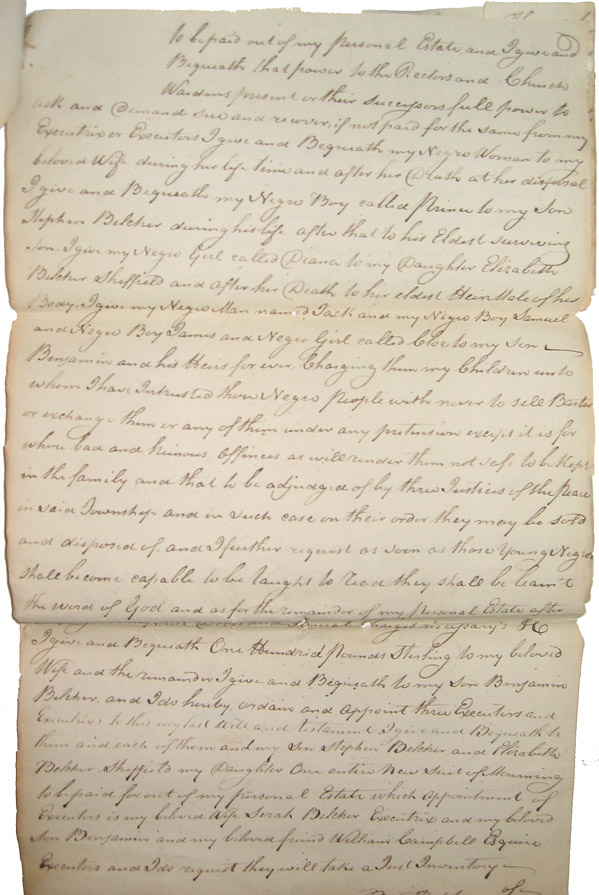 to be paid out of my personal Estate and I give and
Bequeath that power to the Rectors and Church
Wardens present or their successors full power to
ask and Demand sue and recover, if not paid for the same from my
Executrix or Executors I give and Bequeath my Negro Woman to my
beloved Wife during her life time and after her Death at her disposal
I give and Bequeath my Negro Boy called Prince to my Son
Stephen Belcher during his life after that to his Eldest surviving
Son. I give my Negro Girl called Diana to my Daughter Elizabeth
Belcher Sheffield and after her Death to her eldest Heir Male of her
Body. I give my Negro Man named Jack and my Negro Boy Samuel
and Negro Boy James and Negro Girl called Cloe to my Son
Benjamin and his Heirs for ever. Charging them my Children unto
whom I have Intrusted those Negro People with never to sell Barter
or exchange them or any of them under any pretension except it is for
whose bad and heinous Offences as will render them not safe to be kept
in the family and that to be adjudged of by three Justices of the Peace
in said Township and in such case on their order they may be sold
and disposed of. and I further request as soon as those Young Negroes
shall become capable to be taught to read they shall be learn't
the word of God and as for the remainder of my personal Estate after
charges necessary's &c
I give and Bequeath One Hundred pounds Sterling to my beloved
Wife and the remainder I give and Bequeath to my Son Benjamin
Belcher, and I do hereby ordain and appoint three Executors and
Executrix to this my last Will and testament I give and Bequeath to
them and each of them and my Son Stephen Belcher and Elizabeth
Belcher Sheffield my Daughter One entire New Suit of Mourning
to be paid for out of my personal Estate which appointment of
Executors is my beloved Wife Sarah Belcher Executrix and my beloved
Son Benjamin and my beloved friend William Campbell Esquire
Executors and I do request they will take a Just Inventory
of